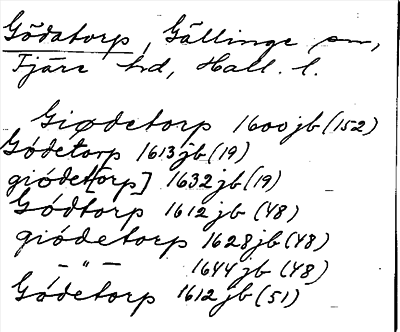 Gödatorp, Gällinge sn,
Fjäre hd, Hall. l.
Giødetorp 1600 jb (152)
Gódetorp 1613 jb (19)
giódet[orp] 1632 jb (19)
Gódtorp 1612 jb (48)
giódetorp 1628 jb (48)
— " — 1644 jb (48)
Gódetorp 1612 jb (51)